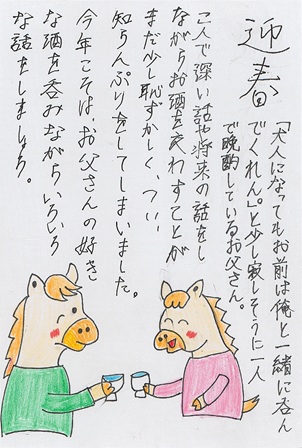 迎春
「大人になってもお前は俺と一緒に呑ん
でくれん。」と少し寂しそうに一人
で晩酌しているお父さん。
二人で深い話や将来の話をし
ながらお酒を交わすことが
まだ少し恥ずかしく、つい
知らんぷりをしてしまいました。
今年こそは、お父さんの好き
な酒を呑みながらいろいろ
な話をしましょう。